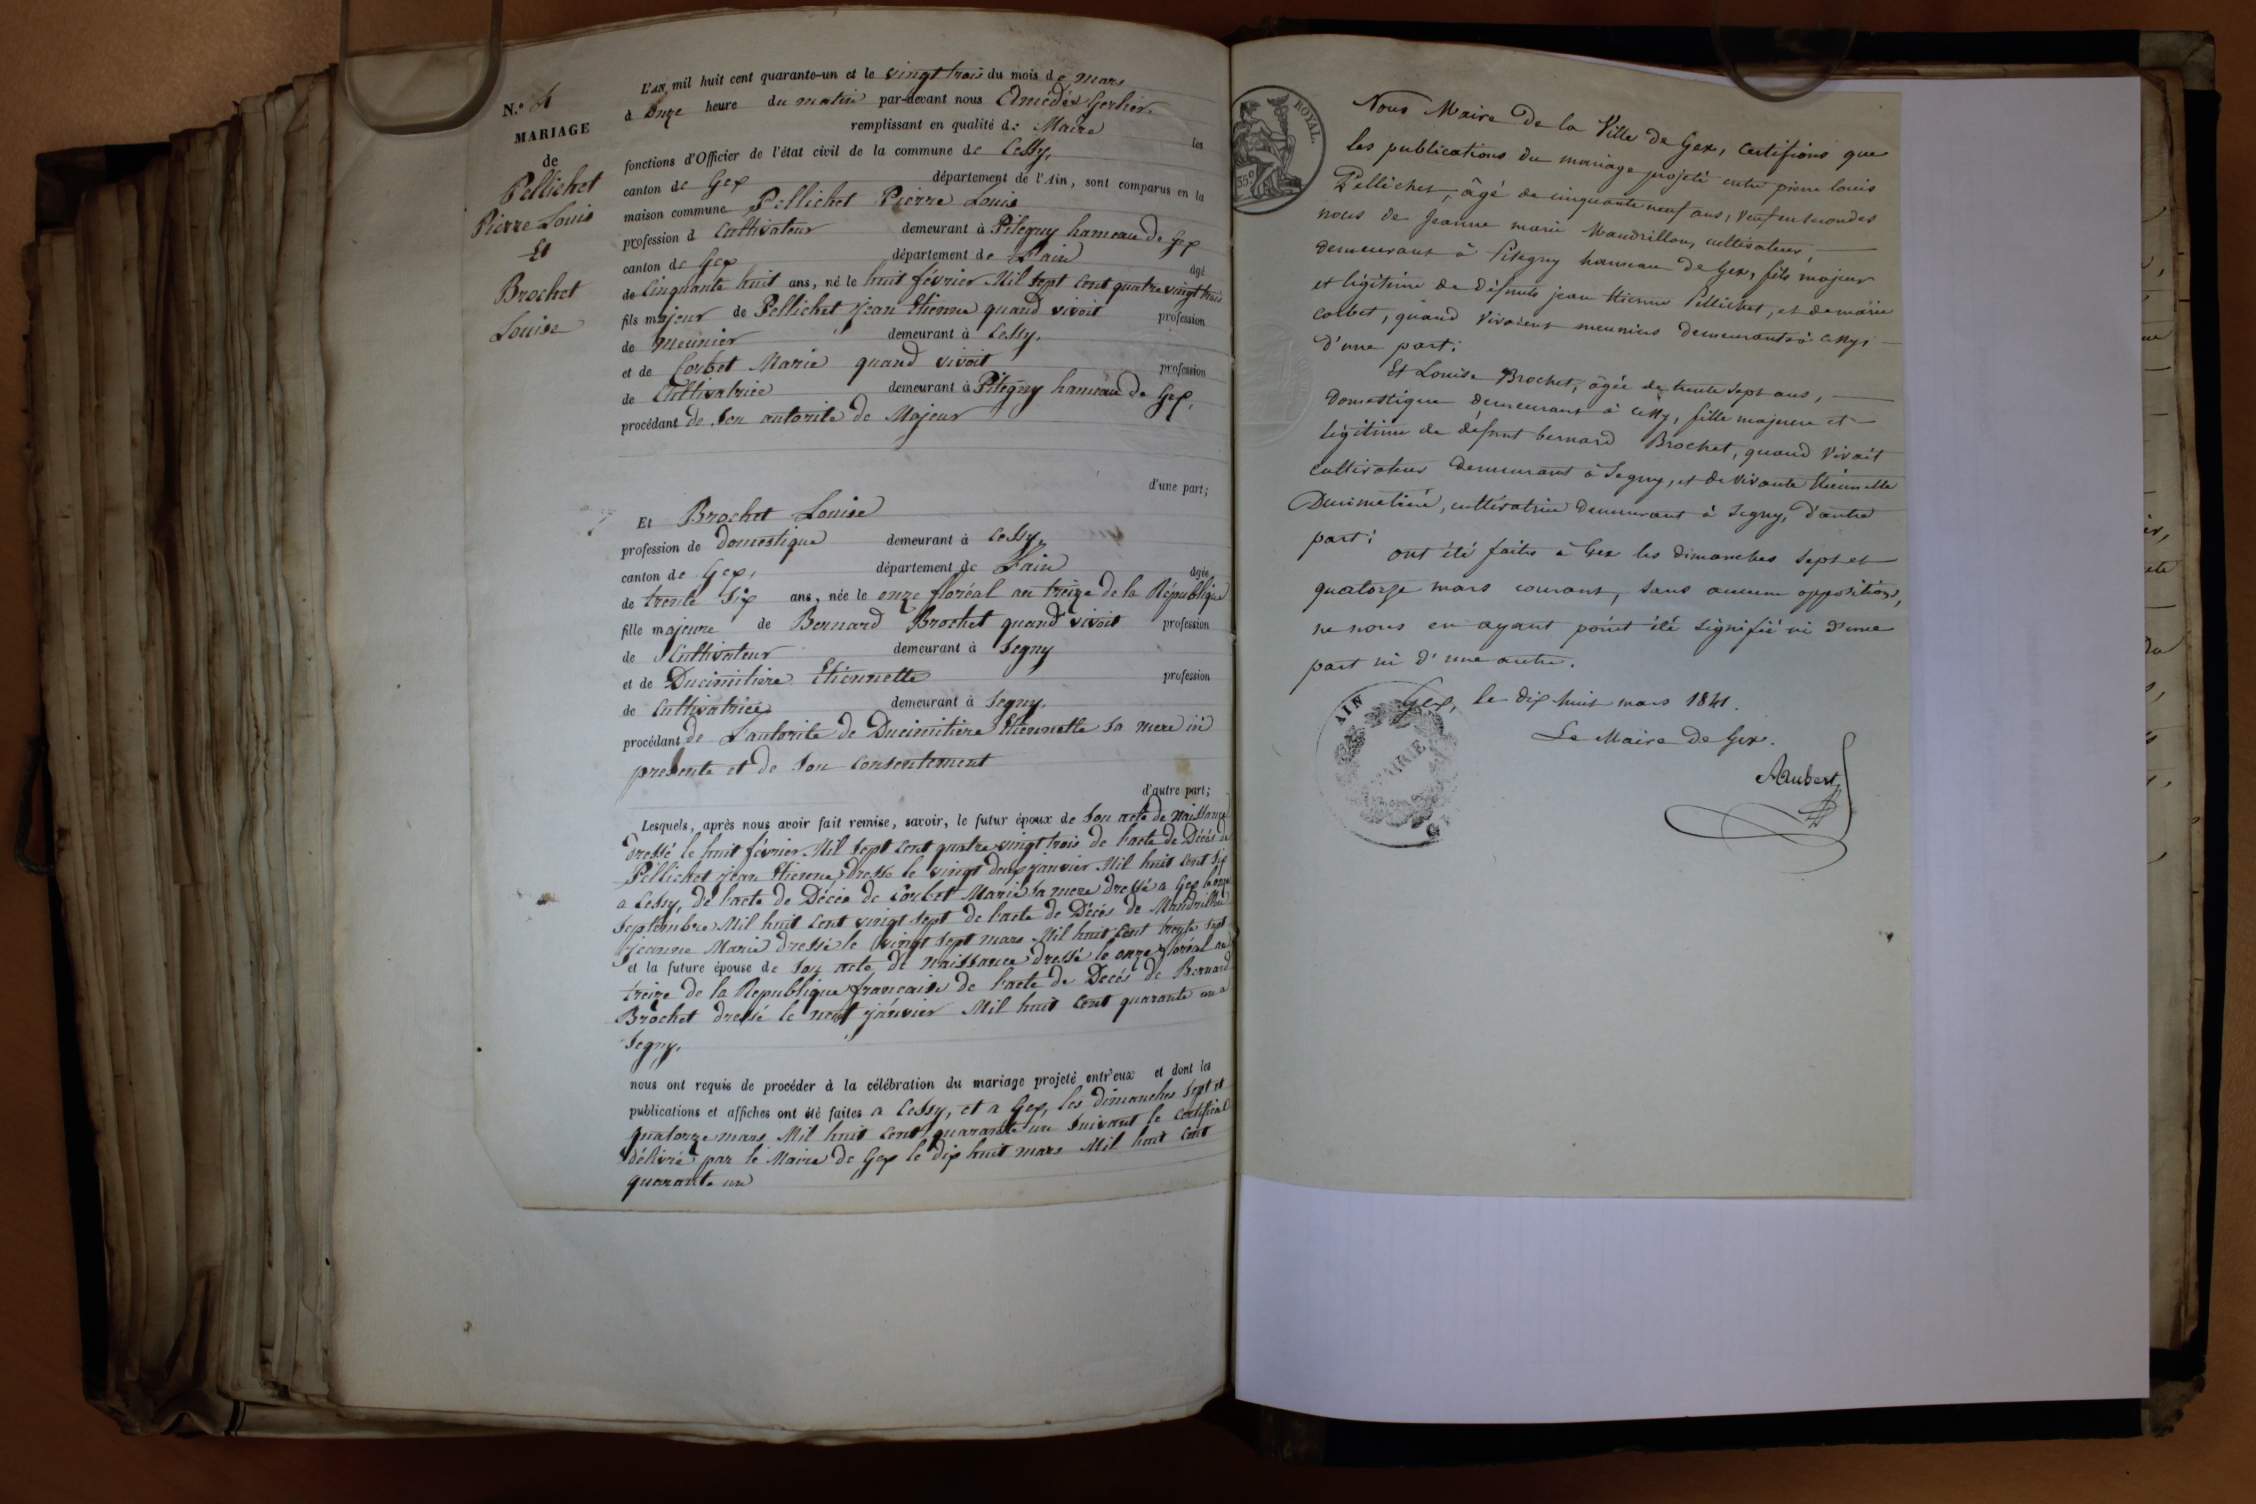 N.º 4
MARIAGE
de
Pellichet
Pierre Louis
Et
Brochet
Louise
L'AN mil huit cent quarante-un et le vingt trois du mois de mars
à Onze heure du matin par-devant nous Amédée Gerlier
remplissant en qualité de Maire les
fonctions d'Officier de l'état civil de la commune de Cessy,
canton de Gex département de l'Ain, sont comparus en la
maison commune Pellichet Pierre Louis
profession d Cultivateur demeurant à Pitegny hameau de Gex
canton de Gex département de L'ain âgé
de Cinquante huit ans, né le huit février Mil Sept Cent quatre vingt trois
fils majeur de Pellichet Jean Etienne quand vivoit profession
de Meunier demeurant à Cessy.
et de Corbet Marie quand vivoit profession
de Cultivatrice demeurant à Pitegny hameau de Gex,
procédant de Son autorité de Majeur
d'une part;
Et Brochet Louise
profession de domestique demeurant à Cessy,
canton de Gex, département de L'ain âgée
de trente Six ans, née le onze floréal an treize de la République
fille majeure de Bernard Brochet quand vivoit profession
de Cultivateur demeurant à Segny
et de Ducimitière Etiennette profession
de Cultivatrice demeurant à Segny.
procédant de L'autorité de Ducimitière Etiennette Sa mere ici
presente et de Son Consentement
d'autre part;
Lesquels, après nous avoir fait remise, savoir, le futur époux de Son acte de Naissance
dressé le huit février Mil Sept Cent quatre vingt trois de l'acte de Décés de
Pellichet Jean Etienne, dressé le vingt deux janvier Mil huit Cent Six
a Cessy, de l'acte de Décés de Corbet Marie Sa mere dressé a Gex le onze
Septembre Mil huit Cent vingt Sept de l'acte de Décés de Mandrillon
Jeanne Marie dressé le vingt Sept mars Mil huit Cent trente Sept
et la future épouse de Son acte de Naissance dressé le onze floréal an
treize de la Republique francaise de l'acte de Decés de Bernard
Brochet dressé le neuf janvier Mil huit Cent quarante un a
Segny.
nous ont requis de procéder à la célébration du mariage projeté entr'eux et dont les
publications et affiches ont été faites a Cessy, et a Gex, les dimanches Sept et
quatorze mars Mil huit Cent quarante un Suivant le Certificat
délivré par le Maire de Gex le dix huit mars Mil huit Cent
quarante un
ROYAL.
35c
Nous Maire de la Ville de Gex, certifions que
les publications du mariage projeté entre pierre louis
Pellichet, âgé de cinquante neuf ans, veuf en secondes
noces de Jeanne marie Mandrillon, cultivateur,
demeurant à Pitegny hameau de Gex, fils majeur
et légitime de défunts jean Etienne Pellichet, et de marie
Corbet, quand vivaient meuniers demeurants à Cessy;
d'une part;
Et Louise Brochet, âgée de trente sept ans,
domestique demeurant à Cessy, fille majeure et
légitime de défunt bernard Brochet, quand vivait
cultivateur demeurant à Segny, et de vivante Etiennette
Ducimetière, cultivatrice demeurant à Segny, d'autre
part;
ont été faites à Gex les dimanches sept et
quatorze mars courant, sans aucune opposition,
ne nous en ayant point été signifié ni d'une
part ni d'une autre.
Gex, le dix huit mars 1841.
Le Maire de Gex.
Aubert
AIN
MAIRIE